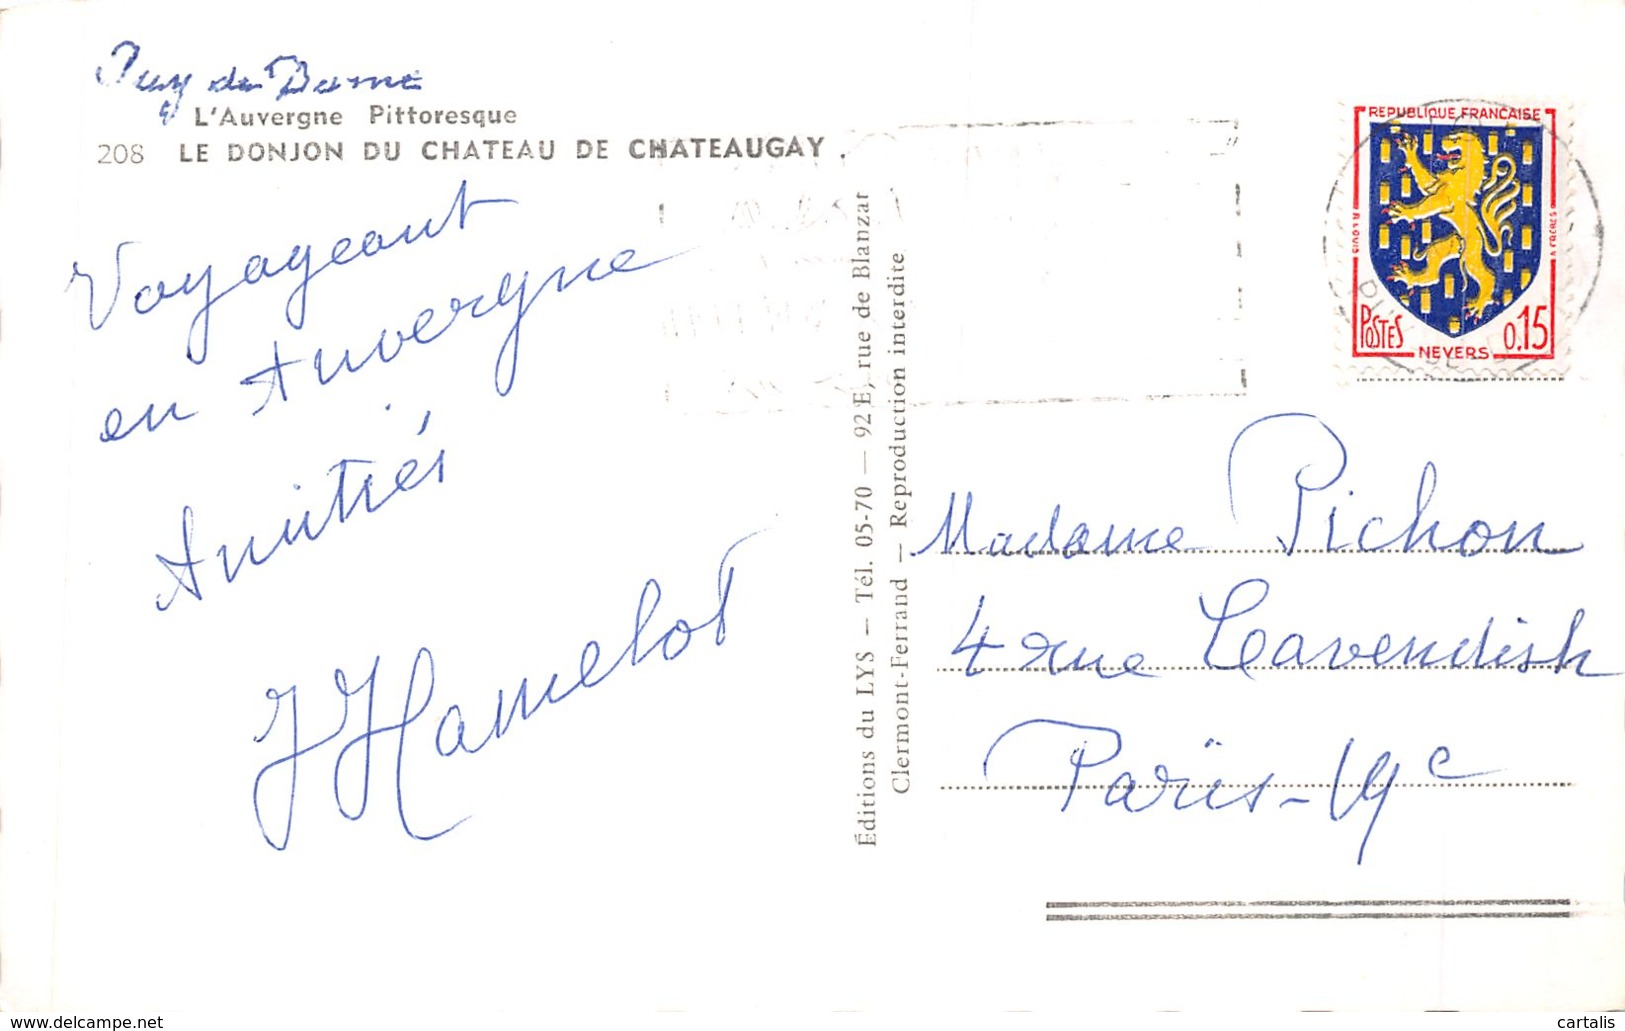 Puy de Dome
L'Auvergne Pittoresque
208 LE DONJON DU CHATEAU DE CHATEAUGAY.
Voyageant
en Auvergne
Amitiés
JHamelot
Éditions du LYS — Tél. 05-70 — 92 E, rue de Blanzat
Clermont-Ferrand — Reproduction interdite
REPUBLIQUE FRANCAISE
POSTES
0,15
NEVERS
Madame Pichon
4 rue Cavendish
Paris-19e
delcampe.net
cartalis